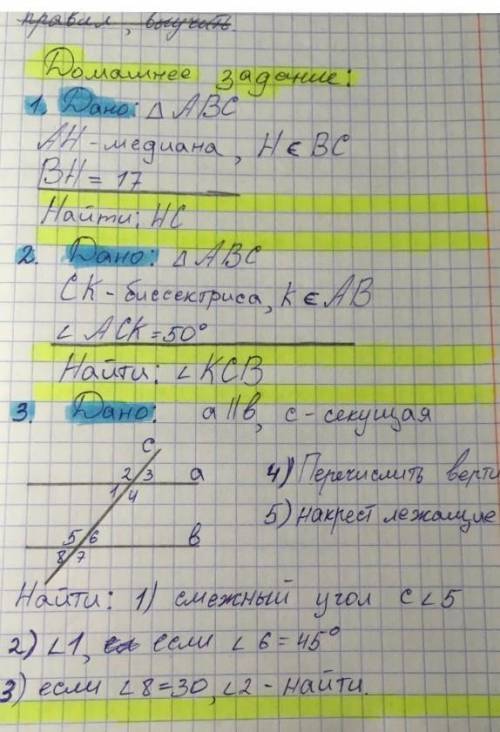 правил, выучить.
Домашнее задание:
1. Дано: △ ABC
AH - медиана, H ∈ BC
BH = 17
Найти: HC
2. Дано: △ ABC
CK - биссектриса, K ∈ AB
∠ ACK = 50°
Найти: ∠ KCB
3. Дано: a || в, c - секущая
c
2 3 a
1 4
5 6 в
8 7
4) Перечислить верти
5) накрест лежащие
Найти: 1) смежный угол с ∠5
2) ∠1, если ∠ 6 = 45°
3) если ∠ 8 = 30, ∠2 - найти.